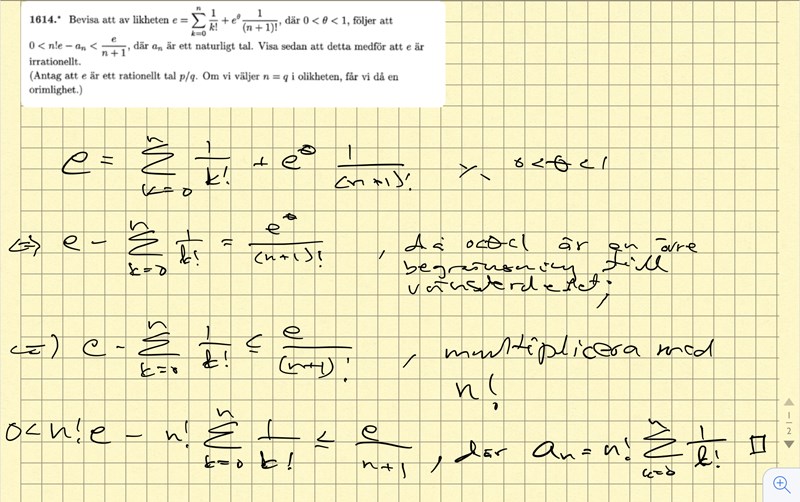 1614.* Bevisa att av likheten e = ∑_{k=0}^{n} 1/k! + e^θ 1/(n+1)!, där 0 < θ < 1, följer att
0 < n!e − a_n < e/(n+1), där a_n är ett naturligt tal. Visa sedan att detta medför att e är
irrationellt.
(Antag att e är ett rationellt tal p/q. Om vi väljer n = q i olikheten, får vi då en
orimlighet.)
e = ∑_{k=0}^{n} 1/k! + e^θ 1/(n+1)! 0<θ<1
⇔ e − ∑_{k=0}^{n} 1/k! = e^θ/(n+1)! , då 0<θ<1 är en övre
begränsning till
vänsterdelet;
⇔ e − ∑_{k=0}^{n} 1/k! ≤ e/(n+1)! , multiplicera med
n!
0 < n!e − n! ∑_{k=0}^{n} 1/k! ≤ e/(n+1) , där a_n = n! ∑_{k=0}^{n} 1/k! □
1
2